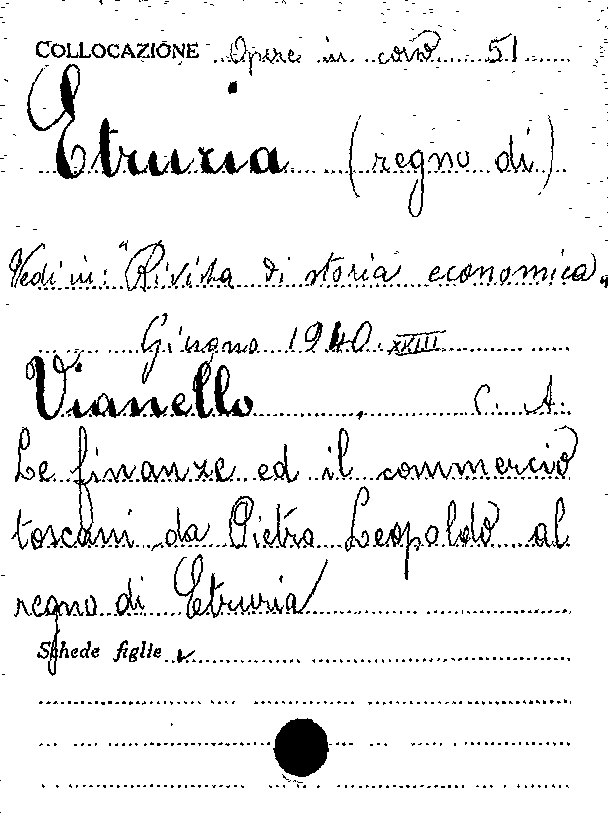 COLLOCAZIONE Opere in corso 51
Etruria (regno di)
Vedi in: "Rivista di storia economica„
Giugno 1940 XXIII
Vianello, C. A.
Le finanze ed il commercio
toscani da Pietro Leopoldo al
regno di Etruria
Schede figlie